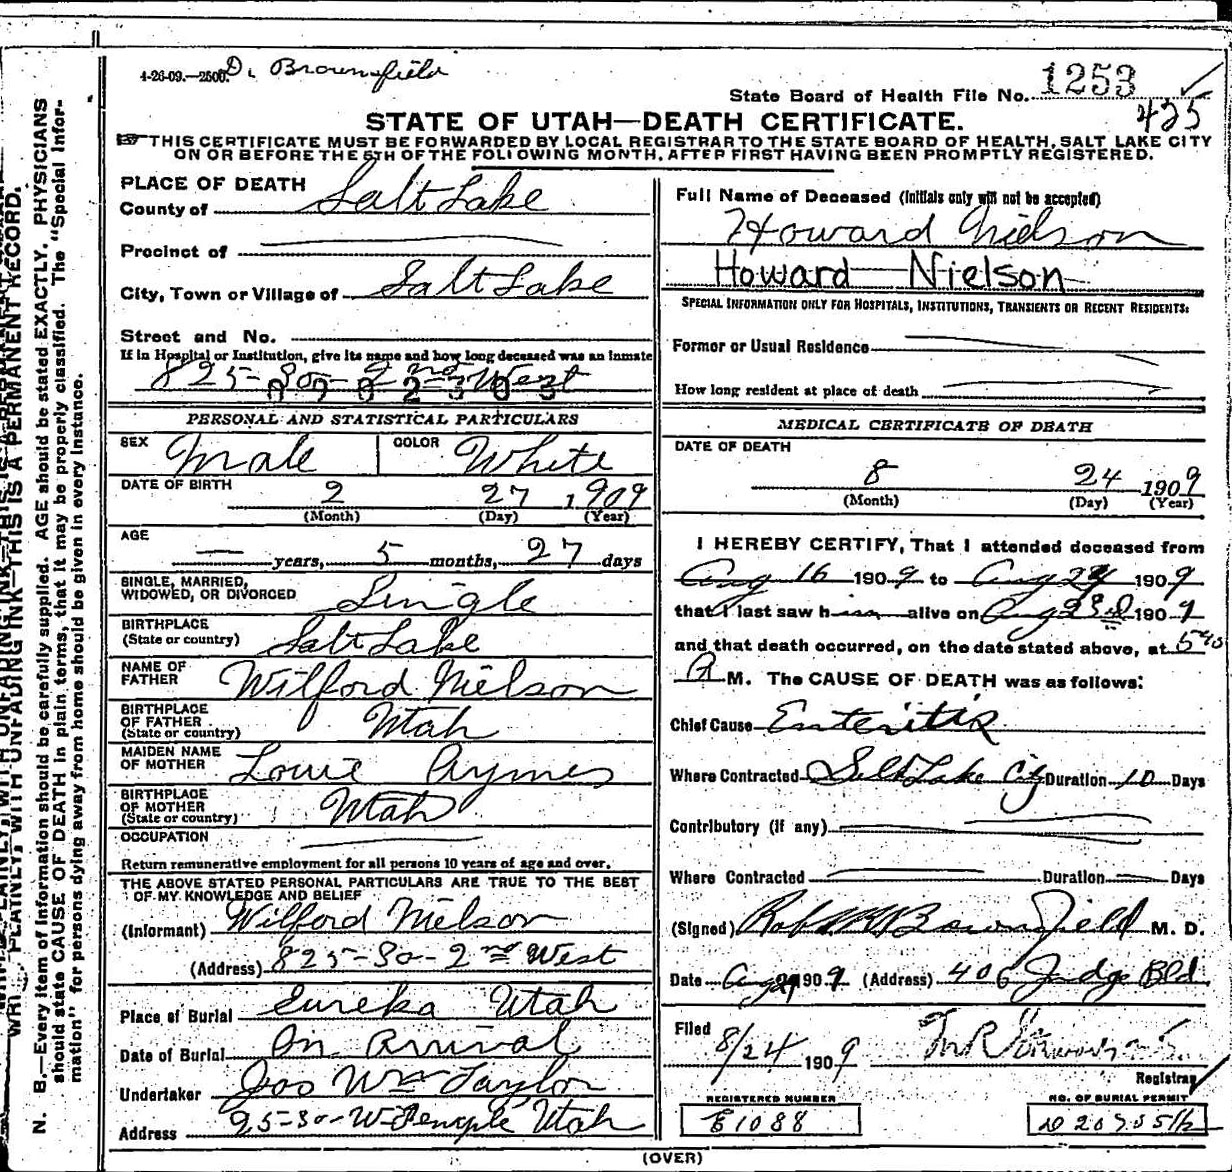 4-26-09.—2500. Dr. Brownsfield
State Board of Health File No. 1253
425
STATE OF UTAH—DEATH CERTIFICATE.
THIS CERTIFICATE MUST BE FORWARDED BY LOCAL REGISTRAR TO THE STATE BOARD OF HEALTH, SALT LAKE CITY
ON OR BEFORE THE 5TH OF THE FOLLOWING MONTH, AFTER FIRST HAVING BEEN PROMPTLY REGISTERED.
PLACE OF DEATH
County of Salt Lake
Precinct of
City, Town or Village of Salt Lake
Street and No.
If in Hospital or Institution, give its name and how long deceased was an inmate
825-So-2nd West
PERSONAL AND STATISTICAL PARTICULARS
SEX Male COLOR White
DATE OF BIRTH 2 27 1909
(Month) (Day) (Year)
AGE
— years, 5 months, 27 days
SINGLE, MARRIED,
WIDOWED, OR DIVORCED Single
BIRTHPLACE
(State or country) Salt Lake
NAME OF
FATHER Wilford Nielson
BIRTHPLACE
OF FATHER
(State or country) Utah
MAIDEN NAME
OF MOTHER Louie Aymes
BIRTHPLACE
OF MOTHER
(State or country) Utah
OCCUPATION
Return remunerative employment for all persons 10 years of age and over.
THE ABOVE STATED PERSONAL PARTICULARS ARE TRUE TO THE BEST
OF MY KNOWLEDGE AND BELIEF
(Informant) Wilford Nielson
(Address) 825-So-2nd West
Place of Burial Eureka Utah
Date of Burial On Arrival
Undertaker Jos Wm Taylor
Address 25-So-W-Temple Utah
Full Name of Deceased (Initials only will not be accepted)
Howard Nielson
Howard Nielson
SPECIAL INFORMATION ONLY FOR HOSPITALS, INSTITUTIONS, TRANSIENTS OR RECENT RESIDENTS:
Former or Usual Residence
How long resident at place of death
MEDICAL CERTIFICATE OF DEATH
DATE OF DEATH
8 24 1909
(Month) (Day) (Year)
I HEREBY CERTIFY, That I attended deceased from
Aug 16 1909 to Aug 24 1909
that I last saw him alive on Aug 23rd 1909
and that death occurred, on the date stated above, at 5 40
A M. The CAUSE OF DEATH was as follows:
Chief Cause Enteritis
Where Contracted Salt Lake City Duration 10 Days
Contributory (if any)
Where Contracted Duration Days
(Signed) Brownfield M. D.
Date Aug 24 1909 (Address) 406 Judge Bld
Filed
8/24 1909
Registrar
REGISTERED NUMBER
E1088
NO. OF BURIAL PERMIT
(OVER)
N. B.—Every item of information should be carefully supplied. AGE should be stated EXACTLY. PHYSICIANS
should state CAUSE OF DEATH in plain terms, that it may be properly classified. The "Special Infor-
mation" for persons dying away from home should be given in every instance.
WRITE PLAINLY, WITH UNFADING INK—THIS IS A PERMANENT RECORD.